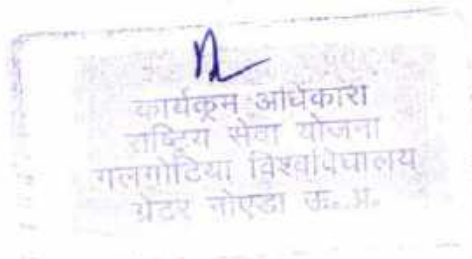 कार्यक्रम अधिकारी
राष्ट्रिय सेवा योजना
गलगोटिया विश्वविधालय
ग्रेटर नोएडा ऊ. प्र.